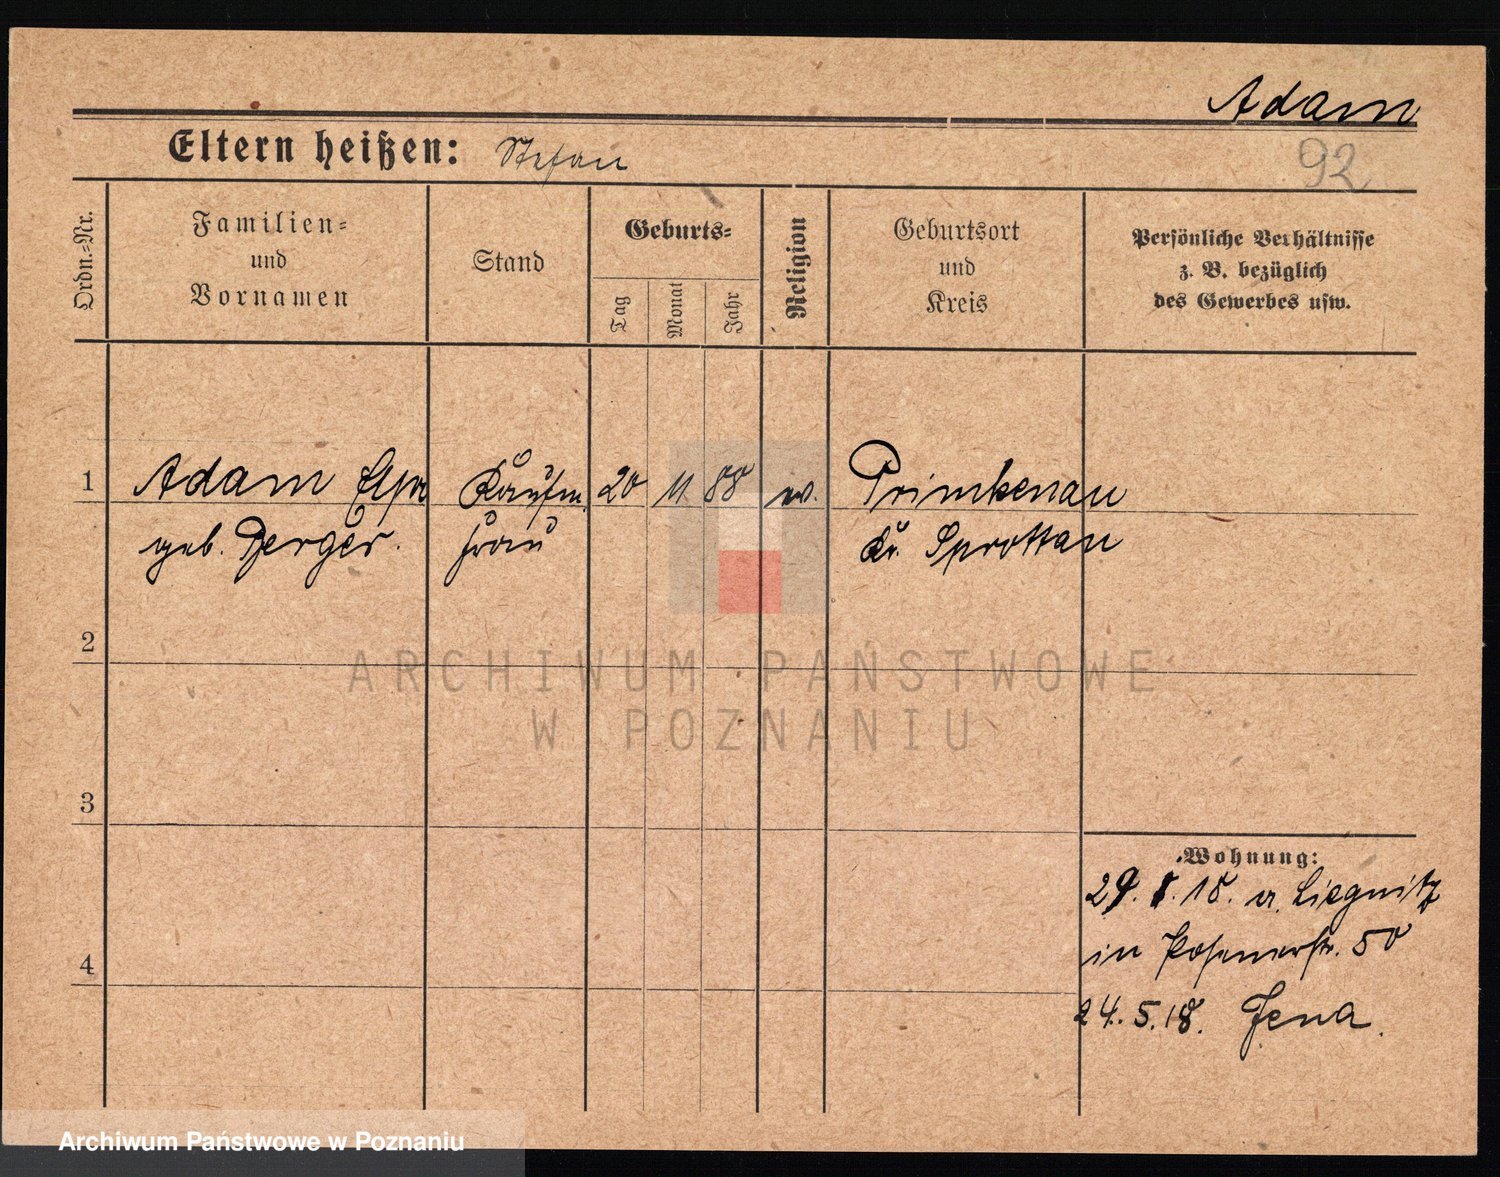 Adam
Eltern heißen: Stefan
92
Ordn.-Nr.
Familien-
und
Vornamen
Stand
Geburts-
Tag
Monat
Jahr
Religion
Geburtsort
und
Kreis
Persönliche Verhältnisse
z. B. bezüglich
des Gewerbes usw.
1 Adam Elsa Kaufm. 20 11 88 ev. Primkenau
geb. Berger. frau Kr. Sprottau
2
3
4
Wohnung:
29. 1. 18. v. Liegnitz
in Posenerstr. 50
24. 5. 18. Jena.
ARCHIWUM PAŃSTWOWE
W POZNANIU
Archiwum Państwowe w Poznaniu